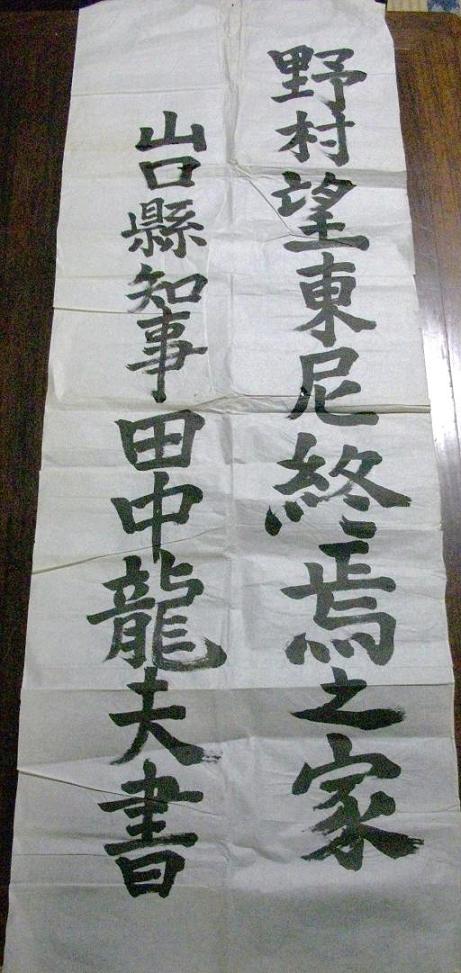 野村望東尼終焉之家
山口縣知事田中龍夫書